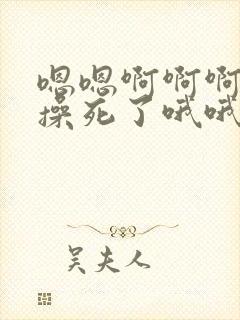 嗯嗯啊啊啊
操死了哦哦
吴夫人